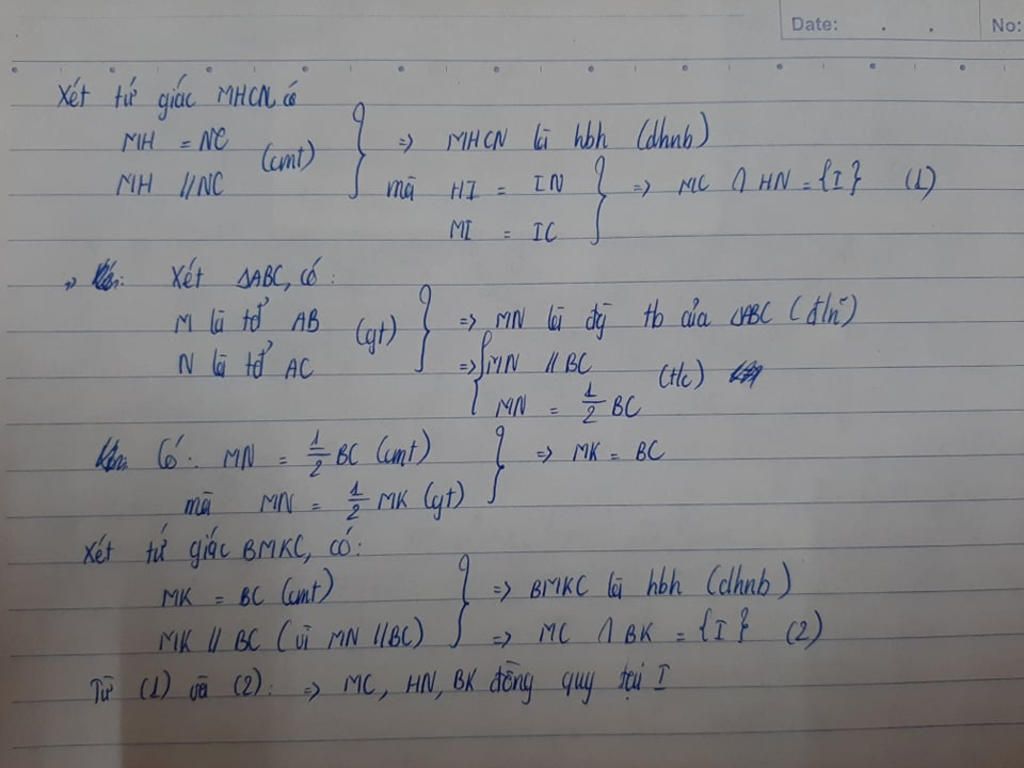 Date: . . No:
Xét tứ giác MHCN có
MH = NC
MH // NC (cmt) } => MHCN là hbh (dhnb)
mà HI = IN
MI = IC } => MC ∩ HN = {I} (1)
Xét ΔABC, có:
M là tđ AB
N là tđ AC (gt) } => MN là đg tb của ΔABC (đln)
=> { MN // BC
MN = 1/2 BC (t/c)
Có: MN = 1/2 BC (cmt)
mà MN = 1/2 MK (gt) } => MK = BC
Xét tứ giác BMKC, có:
MK = BC (cmt) } => BMKC là hbh (dhnb)
MK // BC (vì MN // BC) => MC ∩ BK = {I} (2)
Từ (1) và (2): => MC, HN, BK đồng quy tại I